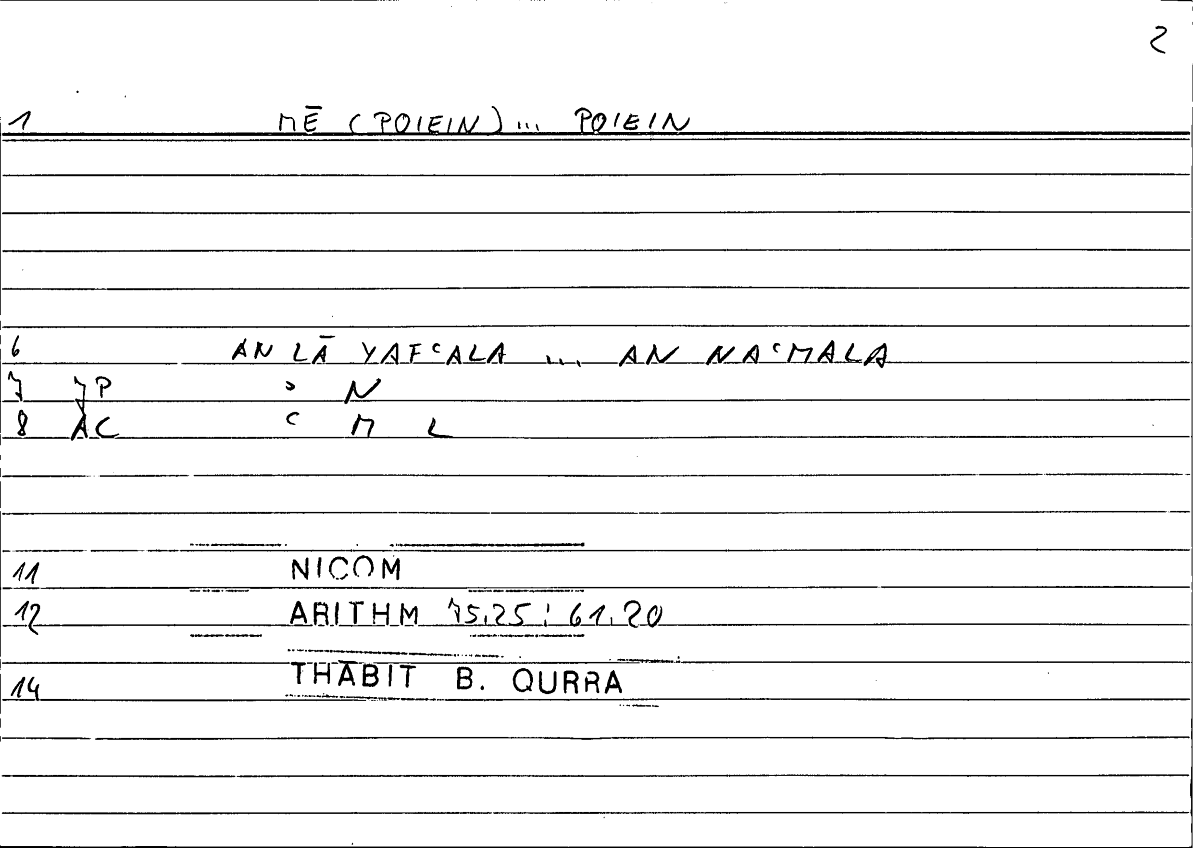 2
1 MĒ (POIEIN)... POIEIN
6 AN LĀ YAFʿALA ... AN NAʿMALA
7 7P ʾ N
8 AC ʿ M L
11 NICOM
12 ARITHM 75.25 ; 61.20
14 THĀBIT B. QURRA